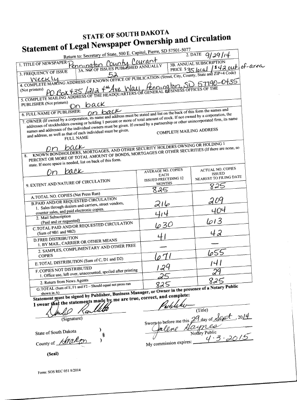 STATE OF SOUTH DAKOTA
Statement of Legal Newspaper Ownership and Circulation
Return to: Secretary of State, 500 E. Capitol, Pierre, SD 57501-5077
1. TITLE OF NEWSPAPER Pennington County Courant
2. DATE 9/29/14
3. FREQUENCY OF ISSUE Weekly
3A. NO. OF ISSUES PUBLISHED ANNUALLY 52
3B. ANNUAL SUBSCRIPTION PRICE $35 local $42 out-of-area
4. COMPLETE MAILING ADDRESS OF KNOWN OFFICE OF PUBLICATION (Street, City, County, State and ZIP+4 Code)
PO Box 435 Pennington SD 57790-0435
5. COMPLETE MAILING ADDRESS OF THE HEADQUARTERS OF GENERAL BUSINESS OFFICES OF THE
PUBLISHER (Not printer)
On back
6. FULL NAME OF PUBLISHER: On back
7. OWNER (If owned by a corporation, its name and address must be stated and list on the back of this form the names and
addresses of stockholders owning or holding 1 percent or more of total amount of stock. If not owned by a corporation, the
names and addresses of the individual owners must be given. If owned by a partnership or other unincorporated firm, its name
and address, as well as that of each individual must be given.
FULL NAME COMPLETE MAILING ADDRESS
On back
8. KNOWN BONDHOLDERS, MORTGAGES, AND OTHER SECURITY HOLDERS OWNING OR HOLDING 1
PERCENT OR MORE OF TOTAL AMOUNT OF BONDS, MORTGAGES OR OTHER SECURITIES (If there are none, so
state. If more space is needed, list on back of this form.
On back
9. EXTENT AND NATURE OF CIRCULATION
AVERAGE NO. COPIES EACH ISSUES PRECEDING 12 MONTHS
ACTUAL NO. COPIES ISSUED NEAREST TO FILING DATE
A. TOTAL NO. COPIES (Net Press Run) 825 825
B. PAID AND/OR REQUESTED CIRCULATION
1. Sales through dealers and carriers, street vendors,
counter sales, and paid electronic copies. 216 209
2. Mail Subscription
(Paid and or requested) 414 404
C. TOTAL PAID AND/OR REQUESTED CIRCULATION
(Sum of 9B1 and 9B2) 630 613
D. FREE DISTRIBUTION
1. BY MAIL, CARRIER OR OTHER MEANS 41 42
2. SAMPLES, COMPLIMENTARY AND OTHER FREE
COPIES
E. TOTAL DISTRIBUTION (Sum of C, D1 and D2) 671 655
F. COPIES NOT DISTRIBUTED
1. Office use, left over, unaccounted, spoiled after printing 129 141
2. Return from News Agents 25 29
G. TOTAL (Sum of E, F1 and F2 - Should equal net press run
shown in A) 825 825
Statement must be signed by Publisher, Business Manager, or Owner in the presence of a Notary Public
I swear that the statements made by me are true, correct, and complete:
Publisher
(Signature) (Title)
State of South Dakota )
Sworn to before me this 29 day of Sept 2014
County of )
Notary Public
(Seal)
My commission expires: 4-3-2015
Form: SOS REC 051 9/2014